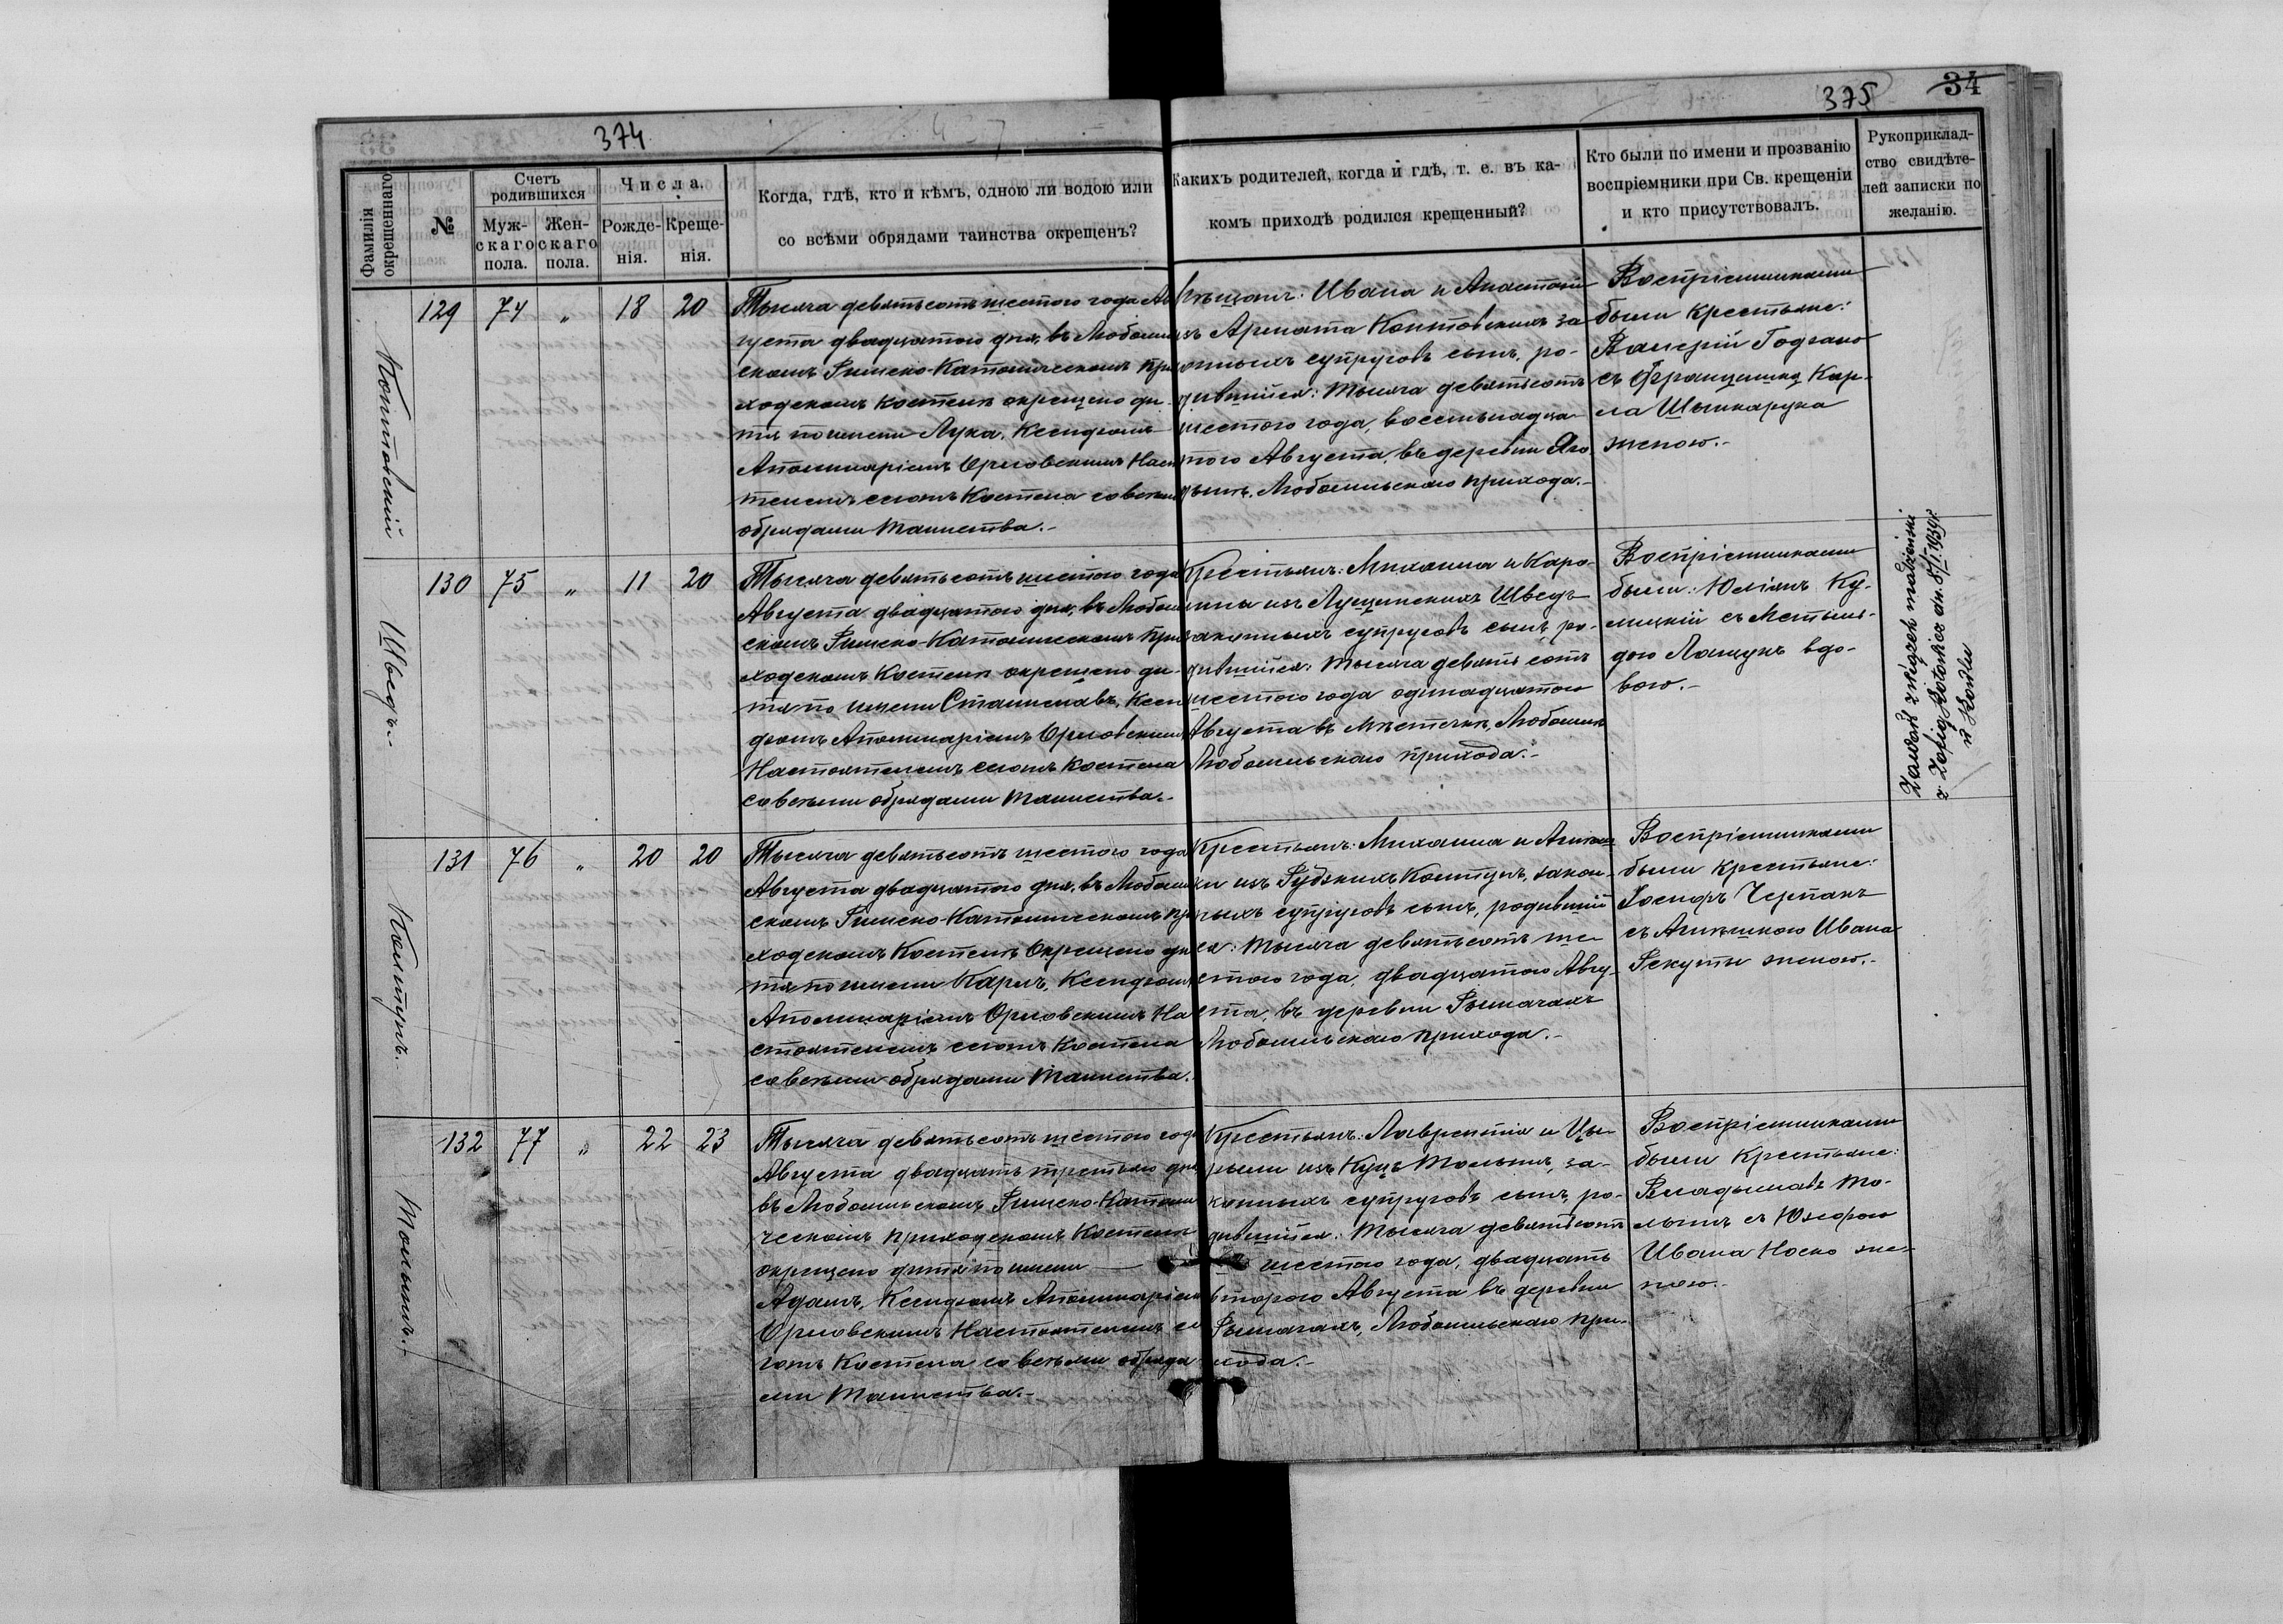 374
375
34
Фамилія окрещеннаго
№
Счетъ родившихся
Муж-скаго пола.
Жен-скаго пола.
Числа.
Рожде-нія.
Креще-нія.
Когда, гдѣ, кто и кѣмъ, одною ли водою или
со всѣми обрядами таинства окрещенъ?
Какихъ родителей, когда и гдѣ, т. е. въ ка-
комъ приходѣ родился крещенный?
Кто были по имени и прозванію
воспріемники при Св. крещеніи
и кто присутствовалъ.
Рукоприклад-
ство свидѣте-
лей записки по
желанію.
129 74 " 18 20
Тысяча девятьсотъ шестого года Ав
густа двадцатого дня, въ Любомль
скомъ Римско-Католическомъ при
ходскомъ Костелѣ окрещено ди-
тя по имени Лука, Ксендзомъ
Аполинаріемъ Орловскимъ Наст
телемъ сегожъ Костела со всѣми
обрядами Таинства.-
Ивана и Анастасіи
конныхъ супруговъ сынъ, ро-
дившійся: Тысяча девятьсотъ
шестого года, восемьнадца-
того Августа, въ деревни Яго
дынѣ, Любомльскаго прихода.-
Воспріемниками
были Крестьяне:
Валерій
съ Францишкą Кар-
ла
женою.-
Шведъ.-
130 75 " 11 20
Тысяча девятьсотъ шестого года
Августа двадцатого дня, въ Любомль
скомъ Римско-Католическомъ При
ходскомъ Костелѣ окрещено ди-
тя по имени Станиславъ, Ксен
дзомъ Аполинаріемъ Орловскимъ
Настоятелемъ сегожъ Костела
со всѣми обрядами Таинства.-
Крестьянъ: Михаила и Каро-
лины изъ Лущинскихъ Шведъ
законныхъ супруговъ сынъ, ро-
дившійся: Тысяча девять сотъ
шестого года одинадцатого
Августа въ Мѣстечкѣ, Любомлѣ
Любомльскаго прихода.-
Воспріемниками
были: Юліянъ Ку-
лицкій съ Метыль-
дою Лащукъ вдо-
вою.-
Zawarł związek małżeński
z Zofią Kotowicz dn. 8/I. 1939 r.
w Kowlu
Колтунъ.-
131 76 " 20 20
Тысяча девятьсотъ шестого года
Августа двадцатого дня, въ Любомль
скомъ Римско-Католическомъ при
ходскомъ Костелѣ Окрещено ди
тя по имени Карлъ, Ксендзомъ
Аполинаріемъ Орловскимъ На
стоятелемъ сегожъ Костела
со всѣми обрядами Таинства.
Крестьянъ: Михаила и Агнѣш
ки изъ Рудзкихъ Колтунъ, закон-
ныхъ супруговъ сынъ, родившій
ся: Тысяча девятьсотъ ше
стого года, двадцатого Авгу-
ста, въ деревни Рымачахъ
Любомльскаго прихода.-
Воспріемниками
были Крестьяне:
Іосифъ Черпакъ
съ Агнѣшкою Ивана
Рекуты женою.-
Толынъ.-
132 77 " 22 23
Тысяча девятьсотъ шестого года
Августа двадцать третьяго дня
въ Любомльскомъ Римско-Католи
ческомъ Приходскомъ Костелѣ
окрещено дитя по имени —
Адамъ, Ксендзомъ Аполинаріемъ
Орловскимъ Настоятелемъ се
гожъ Костела со всѣми обряда
ми Таинства.-
Крестьянъ: Лаврентія и Цы
рыли изъ Куцъ Толынъ, за-
конныхъ супруговъ сынъ, ро-
дившійся: Тысяча девятьсотъ
шестого года, двадцать
второго Августа въ деревни
Рымачахъ, Любомльскаго при-
хода.-
Воспріемниками
были Крестьяне:
Владыславъ То-
лынъ съ Юзефою
Ивана Носко же-
ною.-